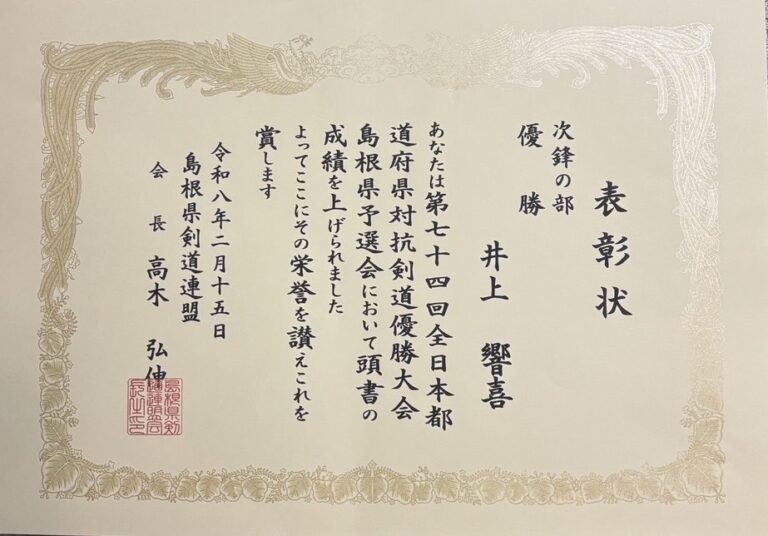 表彰状
次鋒の部
優勝
井上 響喜
あなたは第七十四回全日本都
道府県対抗剣道優勝大会
島根県予選会において頭書の
成績を上げられました
よってここにその栄誉を讃えこれを
賞します
令和八年二月十五日
島根県剣道連盟
会長 高木 弘伸
島根県剣
道連盟会
長之印